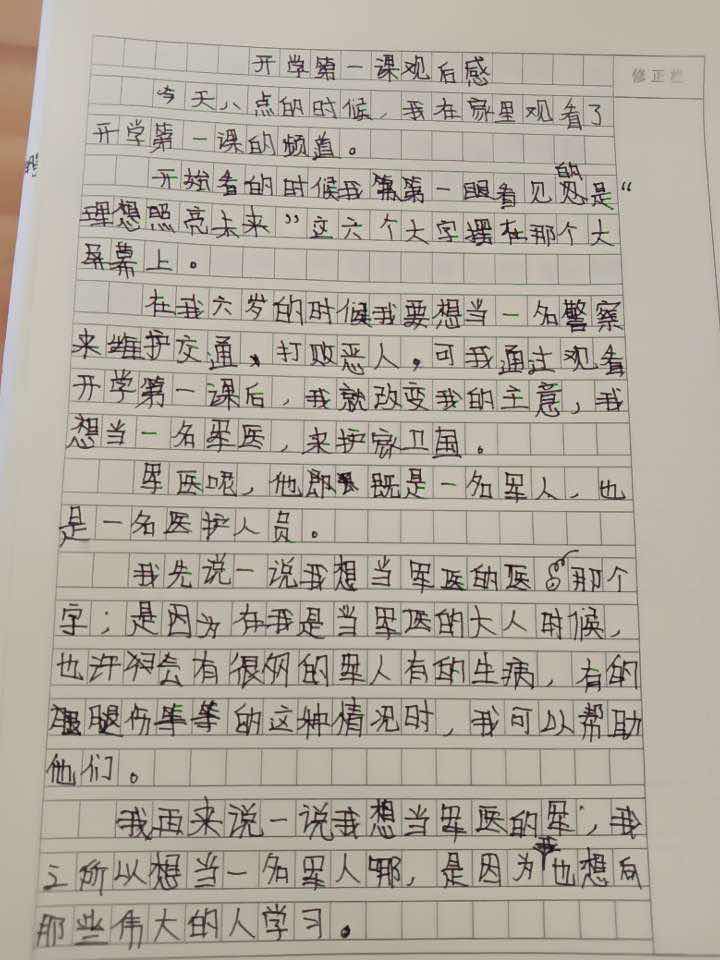 开学第一课观后感
修正栏
今天八点的时候，我在家里观看了
开学第一课的频道。
的
开始看的时候我第一眼看见是“
理想照亮未来”这六个大字摆在那个大
屏幕上。
在我六岁的时候我要想当一名警察
来维护交通、打败恶人。可我通过观看
开学第一课后，我就改变我的主意，我
想当一名军医，来护家卫国。
军医呢，他既是一名军人，也
是一名医护人员。
我先说一说我想当军医的医那个
字；是因为在我是当军医的大人时候，
也许会有很多的军人有的生病，有的
腿伤等的这种情况时，我可以帮助
他们。
我再来说一说我想当军医的军；我
之所以想当一名军人那，是因为也想向
那些伟大的人学习。